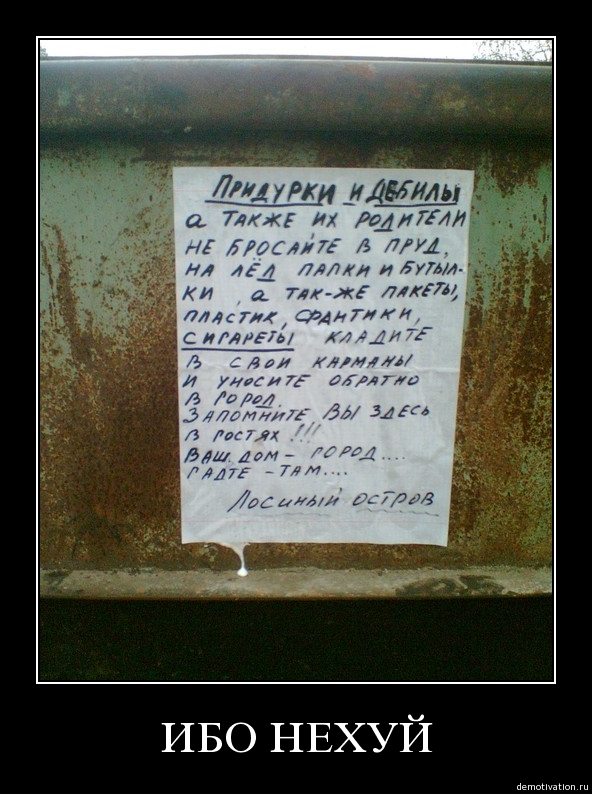 Придурки и дебилы
а также их родители
не бросайте в пруд,
на лёд папки и бутыл-
ки , а так-же пакеты,
пластик, фантики,
сигареты кладите
в свои карманы
и уносите обратно
в город.
Запомните вы здесь
в гостях !!!
Ваш дом – город....
гадте – там....
Лосиный остров
ИБО НЕХУЙ
demotivation.ru